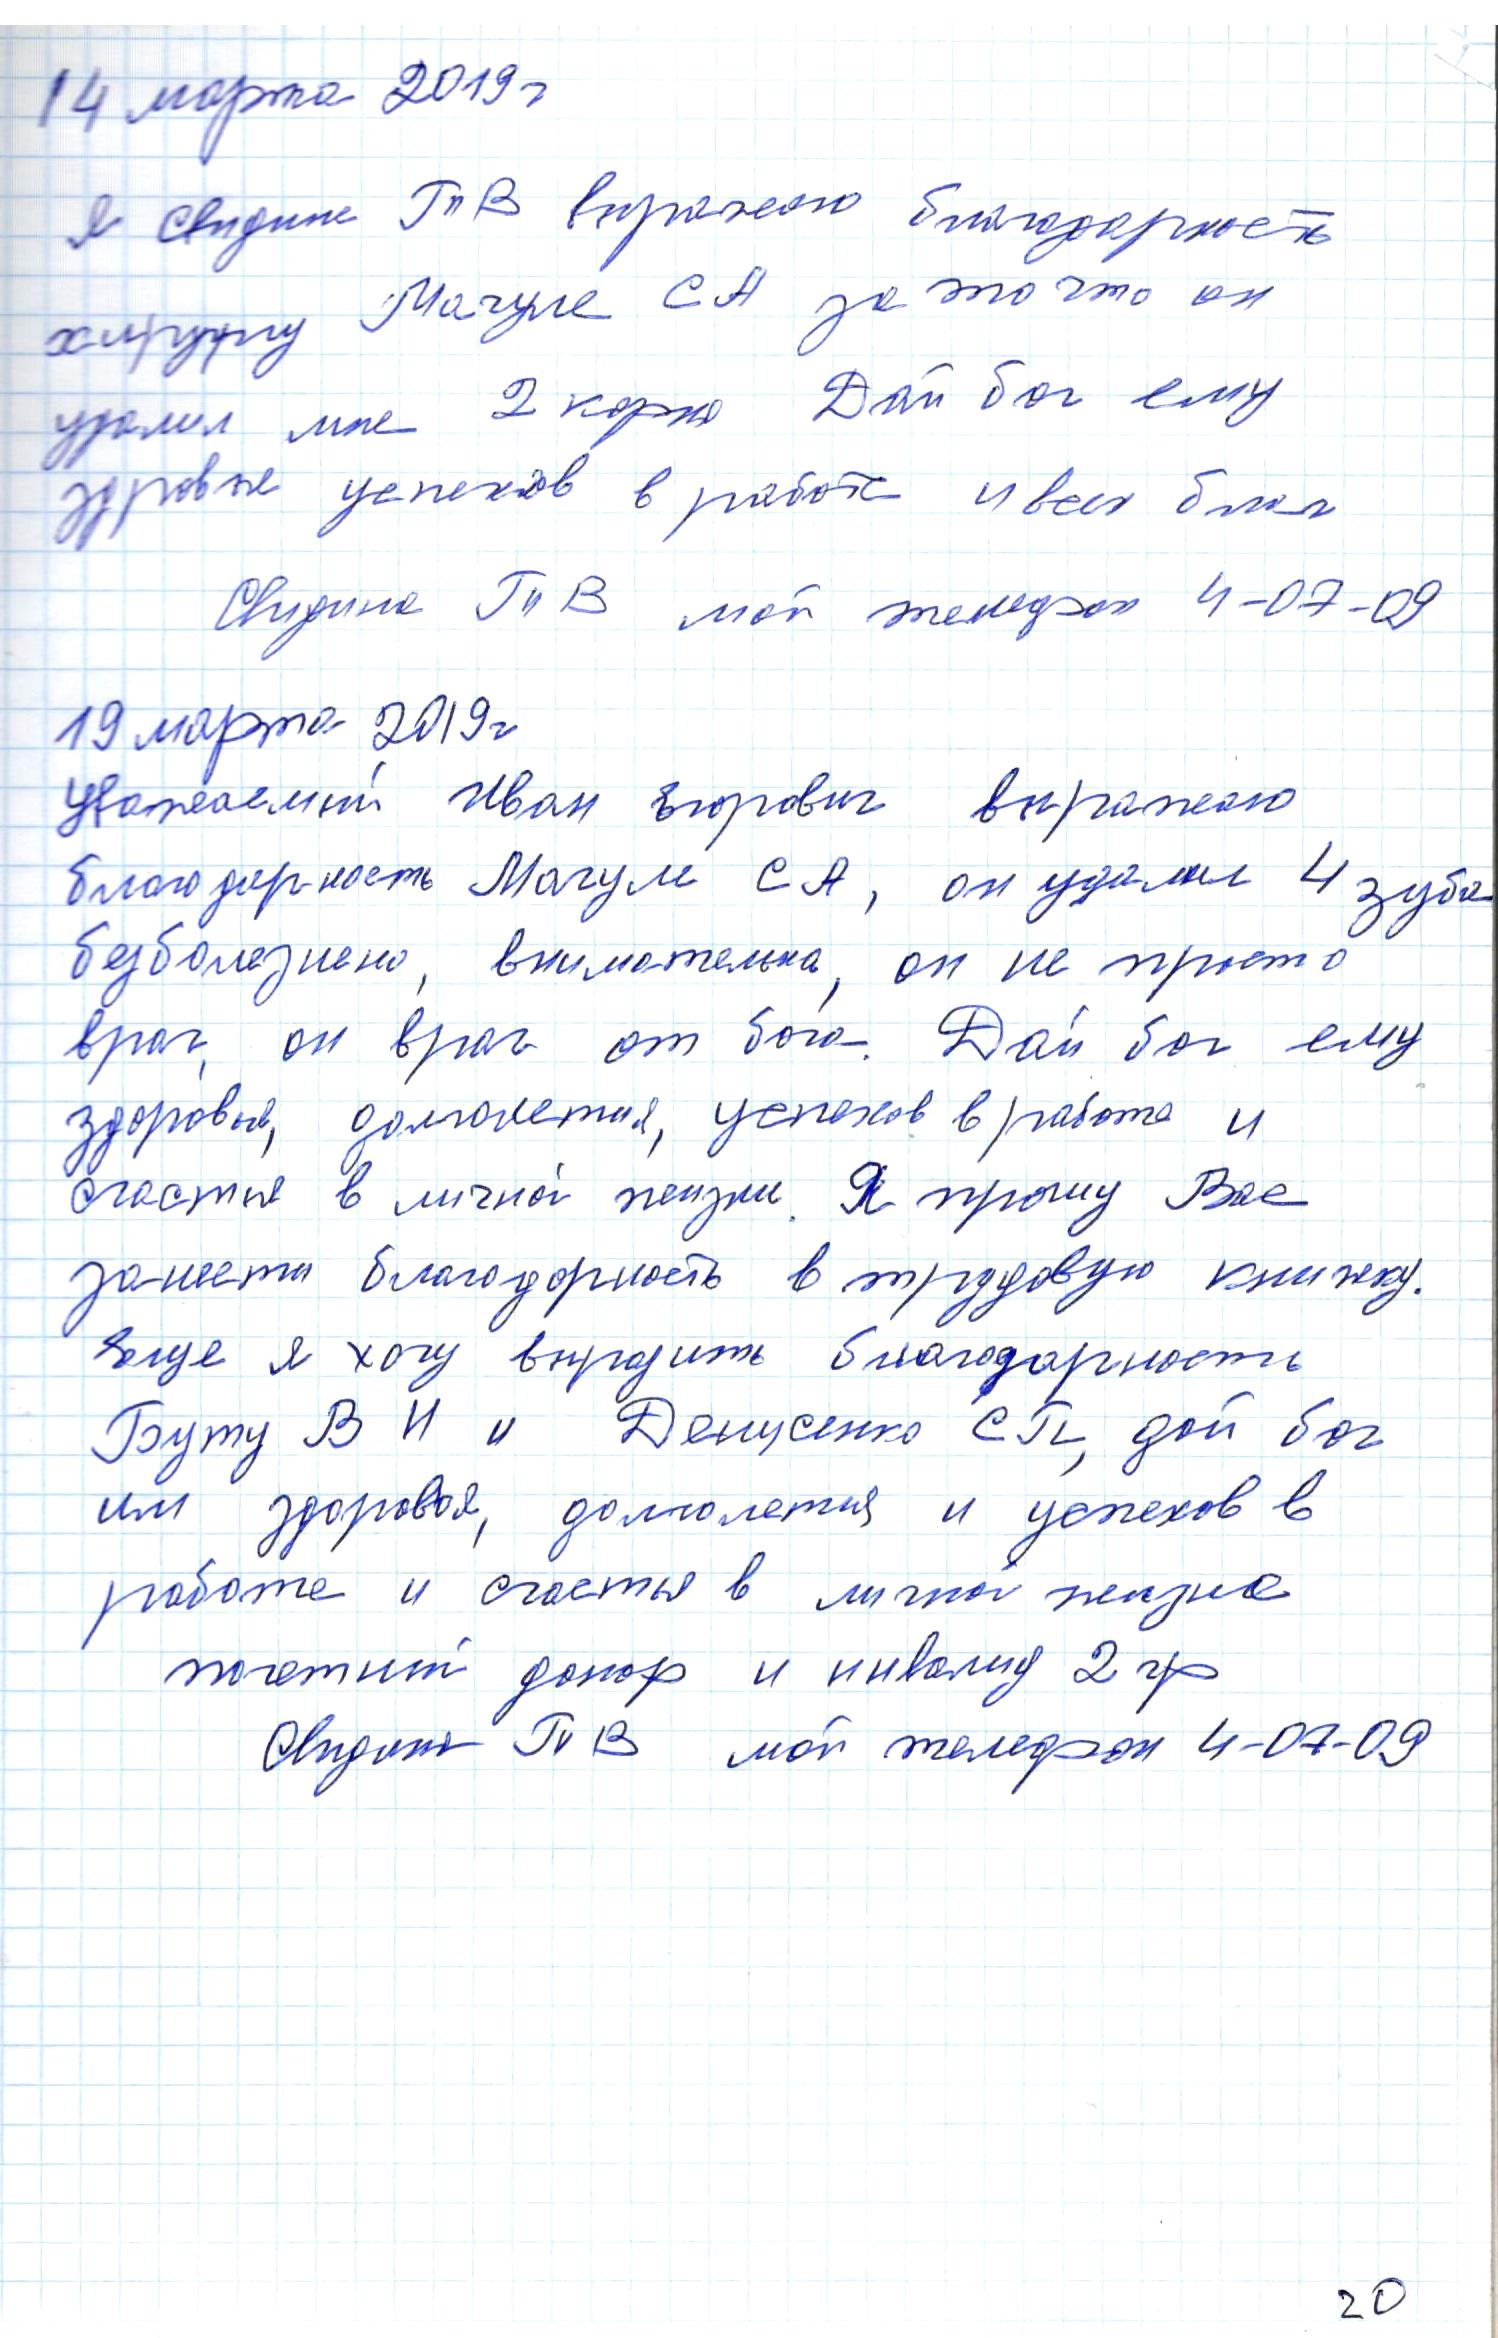 14 марта 2019г
Я Свидина Т В выражаю благодарность
хирургу Мачуле С А за то что он
удалил мне 2 корня Дай бог ему
здровья успехов в работе и всех благ
Свидина Т В мой телефон 4-07-09
19 марта 2019г
Уважаемый Иван Егорович выражаю
благодарность Мачуле С А, он удалил 4 зуба
безболезнено, внимательна, он не просто
врач, он врач от бога. Дай бог ему
здоровья, долголетия, успехов в работе и
счастья в личной жизни. Я прошу Вас
занести благодарность в трудовую книжку.
Еще я хочу выразить благодарность
Буту В И и Денусенко С П, дай бог
им здоровья, долголетия и успехов в
работе и счастья в личной жизне
почетный донор и инвалид 2 гр
Свидина Т В мой телефон 4-07-09
20